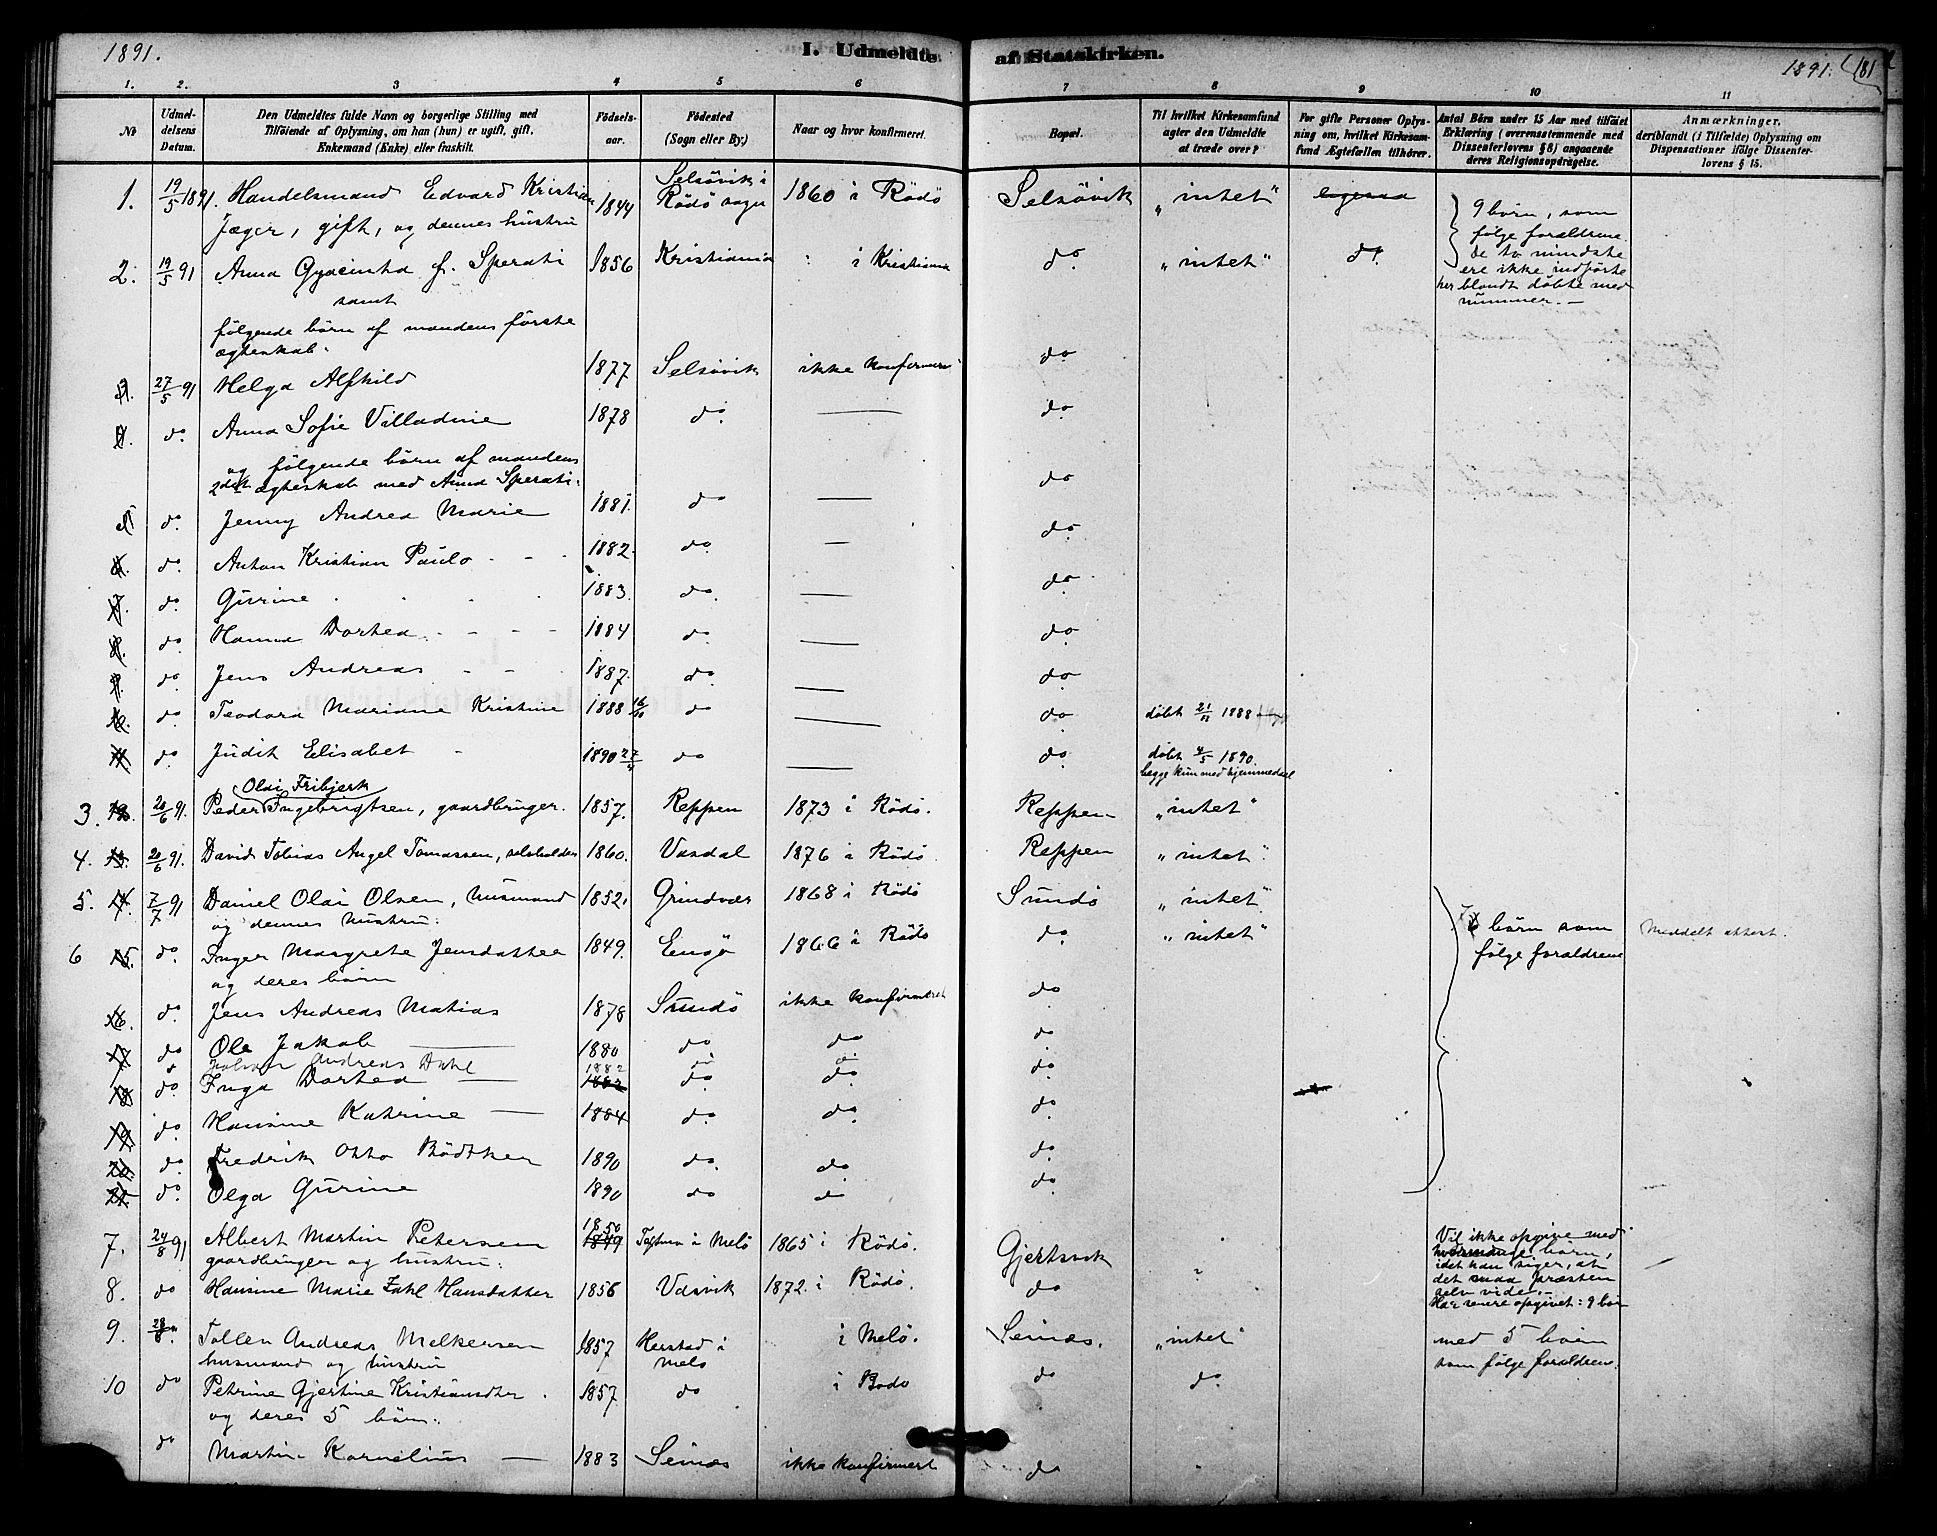 1891.
I. Udmeldte af Statskirken.
1891.
181
1. 2. 3 4 5 6 7 8 9 10 11
№
Udmel-
delsens
Datum.
Den Udmeldtes fulde Navn og borgerlige Stilling med
Tilföiende af Oplysning, om han (hun) er ugift, gift,
Enkemand (Enke) eller fraskilt.
Födsels-
aar.
Födested
(Sogn eller By.)
Naar og hvor konfirmeret.
Bopæl.
Til hvilket Kirkesamfund
agter den Udmeldte
at træde over?
For gifte Personer Oplys-
ning om, hvilket Kirkesam-
fund Ægtefællen tilhörer.
Antal Börn under 15 Aar med tilföiet
Erklæring (overensstemmende med
Dissenterlovens § 8) angaaende
deres Religionsopdragelse.
Anmærkninger,
deriblandt (i Tilfælde) Oplysning om
Dispensationer ifölge Dissenter-
lovens § 15.
1. 19/5 1891. Handelsmand Edvard Kristian 1844 Selsövik i Rödö sogn 1860 i Rödö Selsövik "intet" ligesaa
Jæger, gift, og dennes hustru
9 börn, som
følge forældrene
de to mindste
ere ikke indförte
her blandt döbte med
nummer. —
2. 19/5 91 Anna Gyacinta f. Sperati 1856 Kristiania i Kristiania do. "intet" do.
samt
følgende börn af mandens förste
ægteskab.
3. 27/5 91 Helga Alfhild 1877 Selsövik ikke konfirmeret do
4. do. Anna Sofie Villadine 1878 do. — do.
og følgende börn af mandens
2det ægteskab med Anna Sperati.
5. do. Jenny Andrea Marie 1881. do — do
6. do. Anton Kristian Paulo 1882. do. — do.
7. do. Gurine 1883. do. — do.
8. do. Hanna Dortea 1884 do. — do.
9. do. Jens Andreas 1887. do. — do.
10. do. Teodora Mariane Kristine 1888 do — do döbt 1888
11. do. Judit Elisabet 1890 do — do. döbt 4/5 1890.
begge kun med hjemmedaab
Olai Fribjerk
3. 12. 20/6 91. Peder Ingebrigtsen, gaardbruger. 1857. Reppen 1873 i Rödö. Reppen "intet"
4. 13. 20/6 91. David Tobias Angel Tomassen, selvholder 1860. Vasdal 1876 i Rödö Reppen "intet".
5. 14. 7/7 91 Daniel Olai Olsen, husmand 1852. Grindvær 1868 i Rödö Sundö "intet".
og dennes hustru:
6 15. do. Inger Margrete Jensdatter 1849. Engö 1866 i Rödö do. "intet"
og deres börn
7 börn som
følge forældrene
Meddelt attest.
16. do. Jens Andreas Matias 1878 Sundö ikke konfirmeret do
17 do Ole Jakob — 1880 do do do.
Andreas Dahl 1882 do do
18 do. Inga Dortea — 1882 do. do. do.
19. do. Hansine Katrine — 1884 do. do. do.
20. do. Fredrik Otto Bödtker 1890 do. do. do.
21. do. Olga Gurine 1890 do do do.
7. 24/8 91 Albert Martin Petersen 1850 1849 i Melö 1865 i Rödö. Gjertsvik
gaardbruger og hustru:
Vil ikke opgive med
hvormange börn,
idet han siger, at
det maa præsten
selv vide. —
Har senere opgivet: 9 börn
8. do Hansine Marie Zahl Hansdatter 1856 Udsvik 1872. i Rödö. do
9. 28/8 Tollev Andreas Melkersen 1857 Herstad i Melö i Melö. Seinæs. "intet"
husmand og hustru
med 5 börn
som følge forældrene.
10 do Petrine Gjertine Kristiansdtr. 1857 do i Bodö do do.
og deres 5 börn.
do Martin Kornelius — 1883 Seinæs ikke konfirmert do